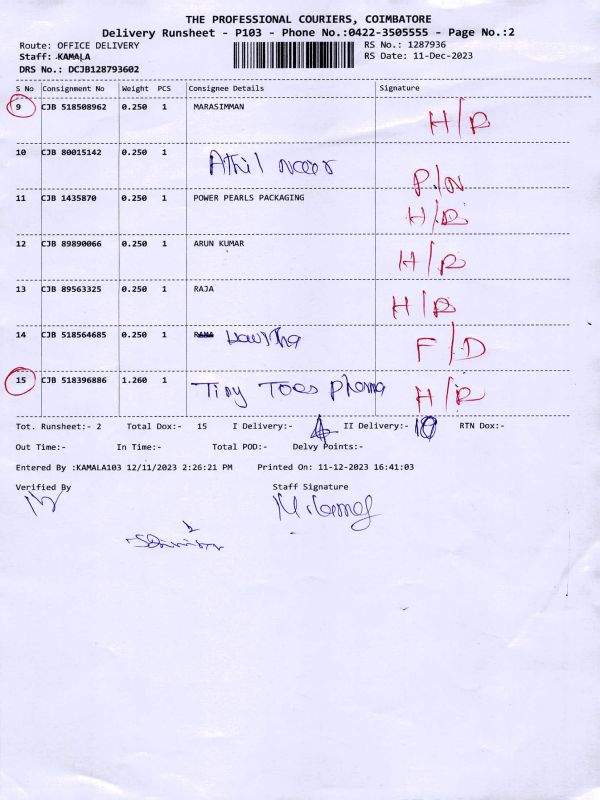 THE PROFESSIONAL COURIERS, COIMBATORE
Delivery Runsheet - P103 - Phone No.:0422-3505555 - Page No.:2
Route: OFFICE DELIVERY RS No.: 1287936
Staff: KAMALA RS Date: 11-Dec-2023
DRS No.: DCJB128793602
S No Consignment No Weight PCS Consignee Details Signature
9 CJB 518508962 0.250 1 MARASIMMAN H/R
10 CJB 80015142 0.250 1 P/N
11 CJB 1435870 0.250 1 POWER PEARLS PACKAGING H/R
12 CJB 89890066 0.250 1 ARUN KUMAR H/R
13 CJB 89563325 0.250 1 RAJA H/R
14 CJB 518564685 0.250 1 F/D
15 CJB 518396886 1.260 1 Tiny Toes pharma H/R
Tot. Runsheet:- 2 Total Dox:- 15 I Delivery:- II Delivery:- RTN Dox:-
Out Time:- In Time:- Total POD:- Delvy Points:-
Entered By :KAMALA103 12/11/2023 2:26:21 PM Printed On: 11-12-2023 16:41:03
Verified By Staff Signature